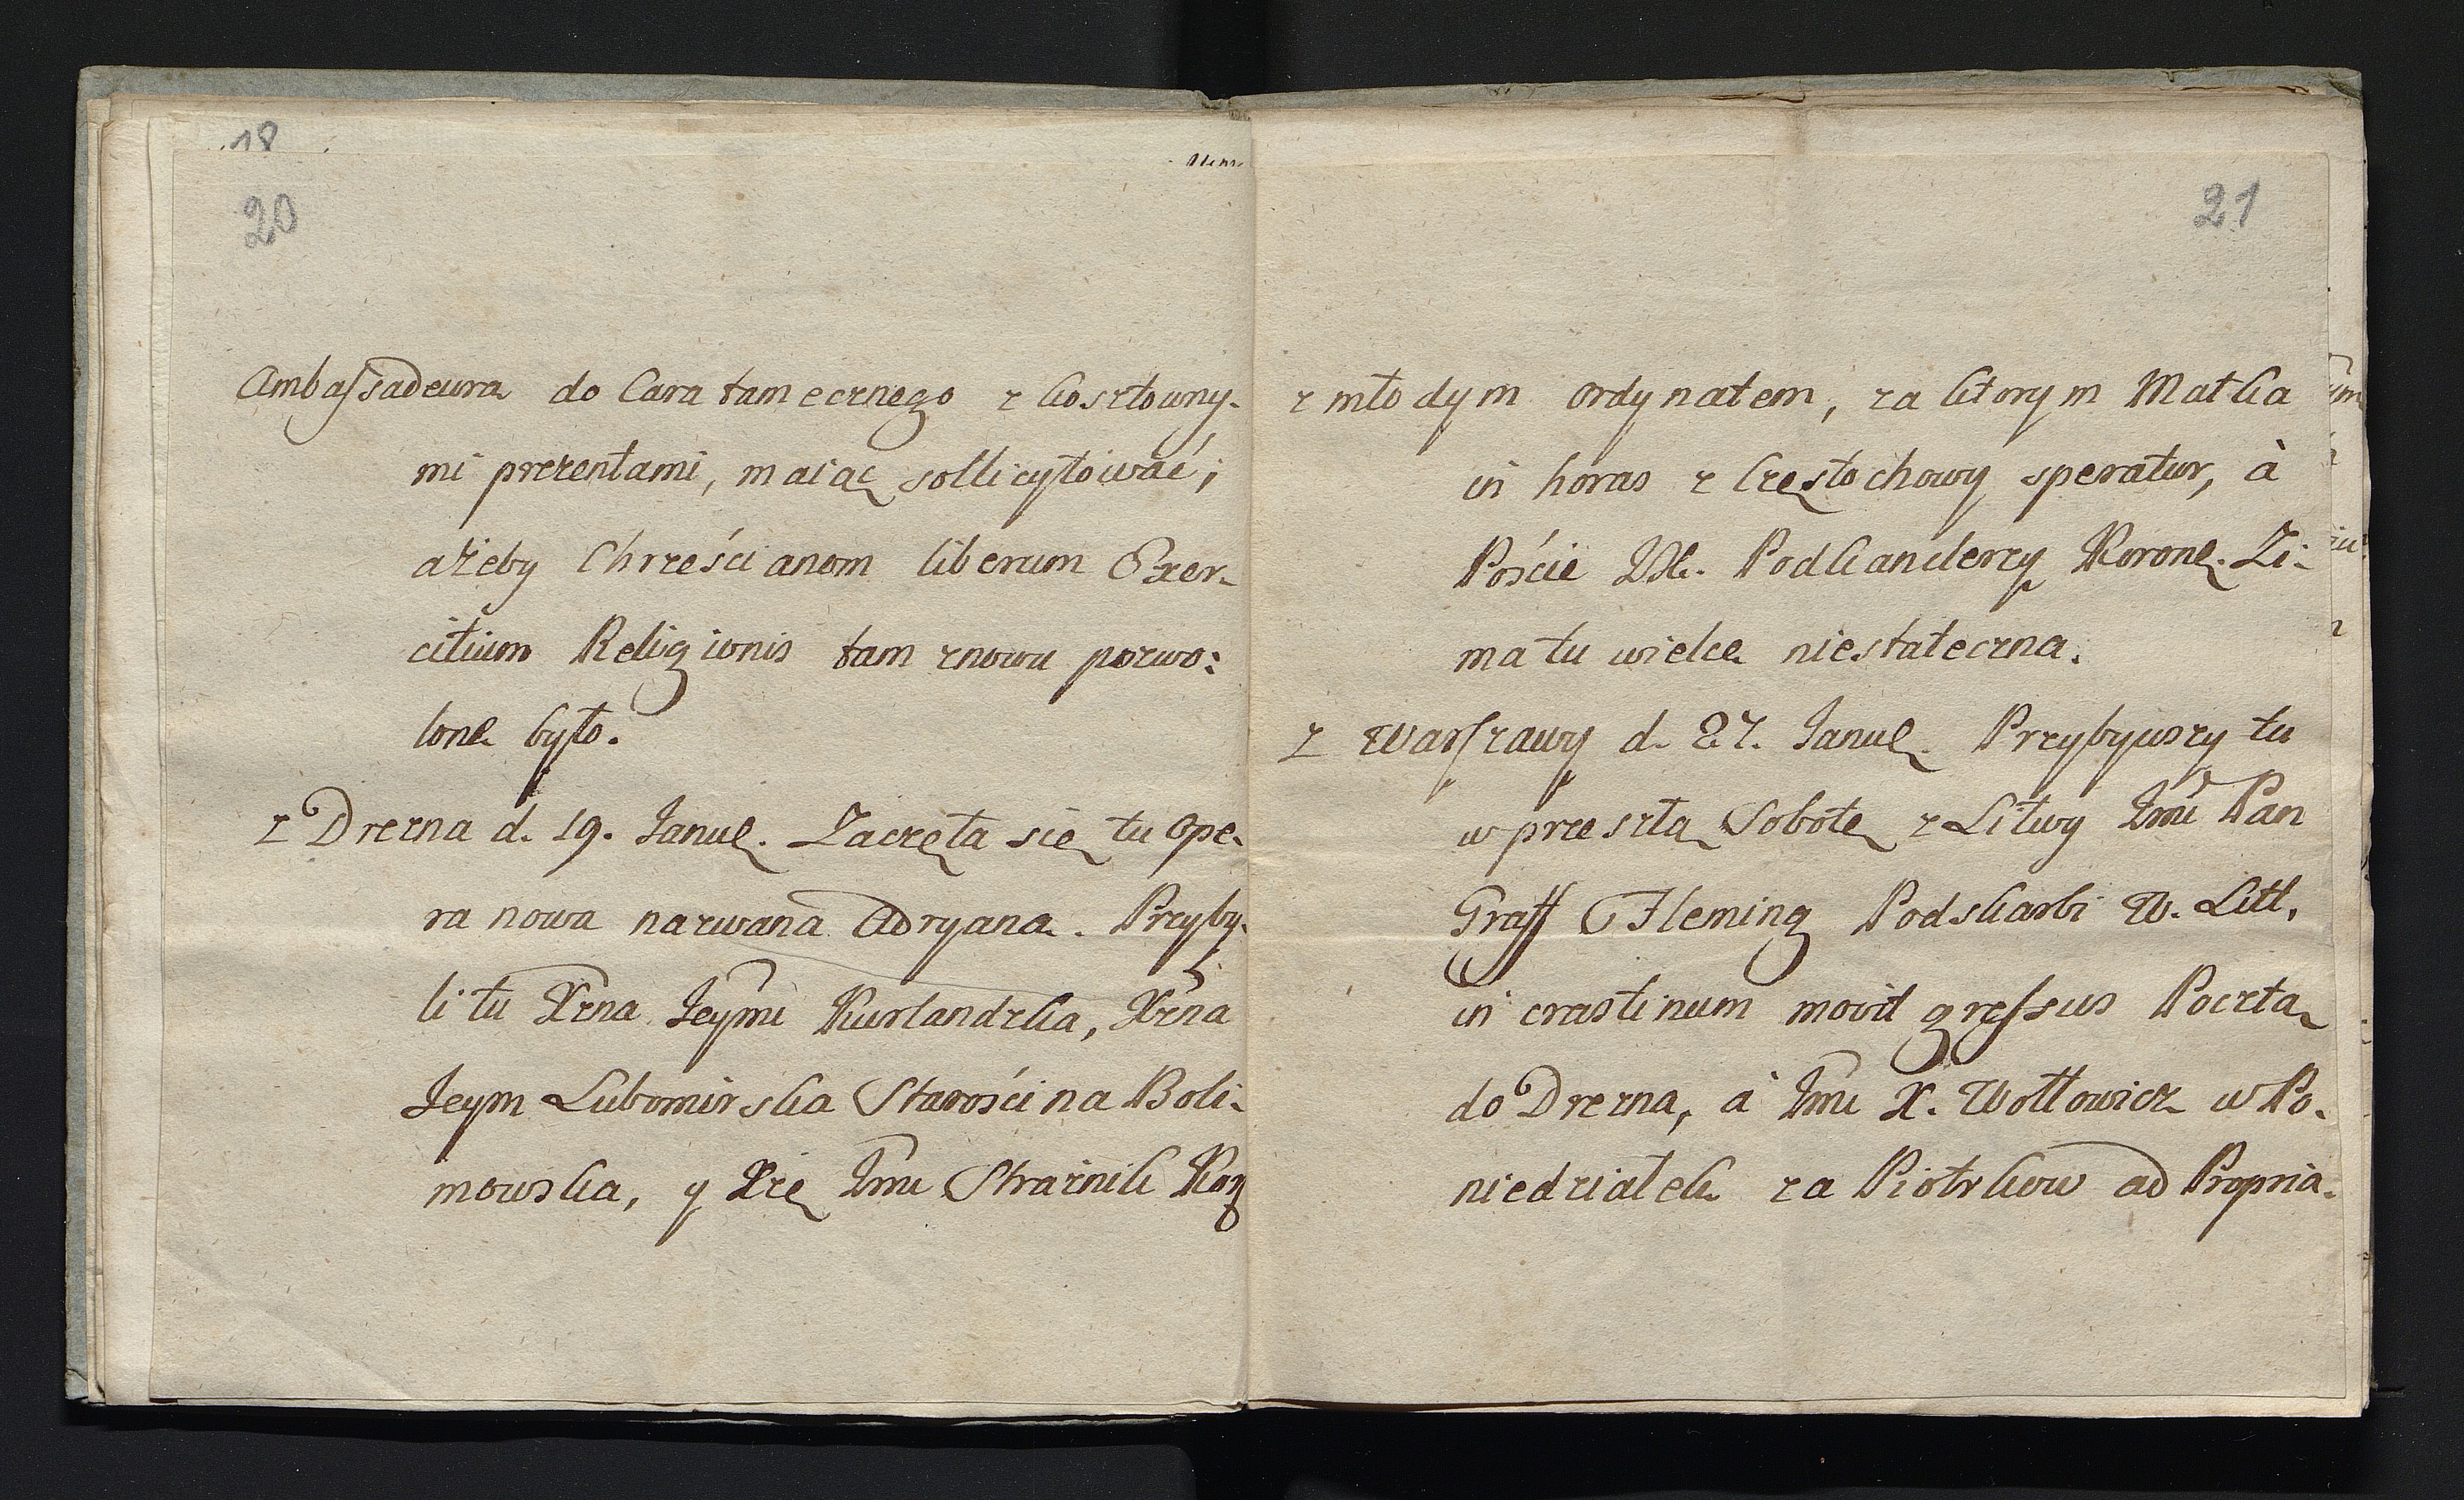 18
20
Ambaſsadeura do Cara tamecznego z kosztowny-
mi prezentami, maiąc sollicytować,
ażeby Chrześcianom liberum Exer-
citium Religionis tam znowu pozwo-
lone było.
z Drezna d. 19. Janue. Zaczęła się tu Ope-
ra nowa nazwana Adryana. Przyby-
li tu Xżna Jeymć Kurlandzka, Xżna
Jeym Lubomirska Starościna Boli-
mowska, y Xże Jmć Strażnik Kor
21
z młodym ordynatem, za ktorym Matka
in horas z Częstochowy speratur, à
Poście Podkanclerzy Korone. Zi-
ma tu wielce niestateczna.
z Warſzawy d. 27. Janue. Przybywszy tu
w przeszłą Sobotę z Litwy Jmć Pan
Graff Fleming Podskarbi W. Litt.
in crastinum movit greſsus Pocztą
do Drezna, à Jmć X. Wołłowicz w Po-
niedziałek za Piotrkow ad Propria.